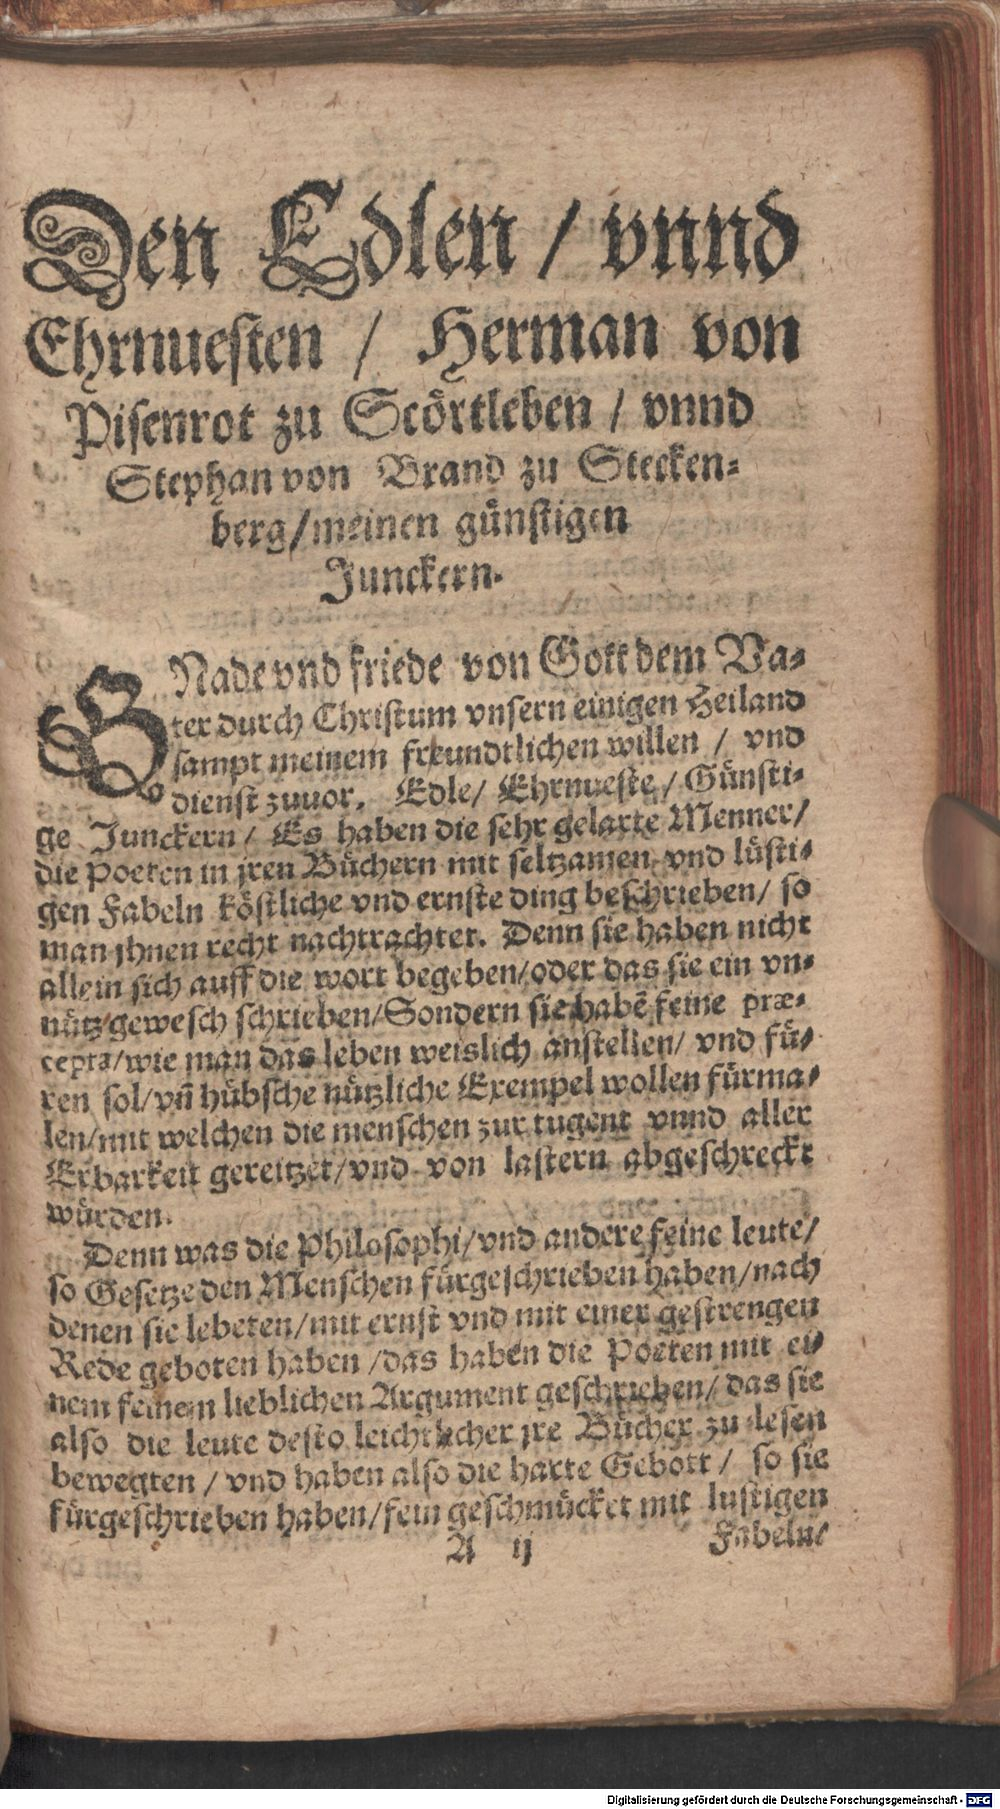 Den Edlen / vnnd
Ehrnuesten / Herman von
Pisenrot zu Scörtleben / vnnd
Stephan von Brand zu Stecken-
berg/meinen günstigen
Junckern.
GNade vnd friede von Gott dem Va-
ter durch Christum vnsern einigen Heiland
sampt meinem freundtlichen willen / vnd
dienst zuuor. Edle/ Ehrnueste/ Günsti-
ge Junckern/ Es haben die sehr gelarte Menner/
die Poeten in jren Büchern mit seltzamen vnd lüsti-
gen Fabeln köstliche vnd ernste ding beschrieben/ so
man jhnen recht nachtrachtet. Denn sie haben nicht
allein sich auff die wort begeben/oder das sie ein vn-
nütz gewesch schrieben/Sondern sie habē feine præ-
cepta/wie man das leben weislich anstellen/ vnd fü-
ren sol/vñ hübsche nützliche Exempel wollen fürma-
len/mit welchen die menschen zur tugent vnnd aller
Erbarkeit gereitzet/vnd von lastern abgeschreckt
würden.
Denn was die Philosophi/vnd andere feine leute/
so Gesetze den Menschen fürgeschrieben haben/nach
denen sie lebeten/mit ernst vnd mit einer gestrengen
Rede geboten haben /das haben die Poeten mit ei-
nem feinem lieblichen Argument geschrieben/ das sie
also die leute desto leichtlicher jre Bücher zu lesen
bewegten / vnd haben also die harte Gebott / so sie
fürgeschrieben haben/fein geschmücket mit lustigen
A ij Fabeln/
Digitalisierung gefördert durch die Deutsche Forschungsgemeinschaft - DFG